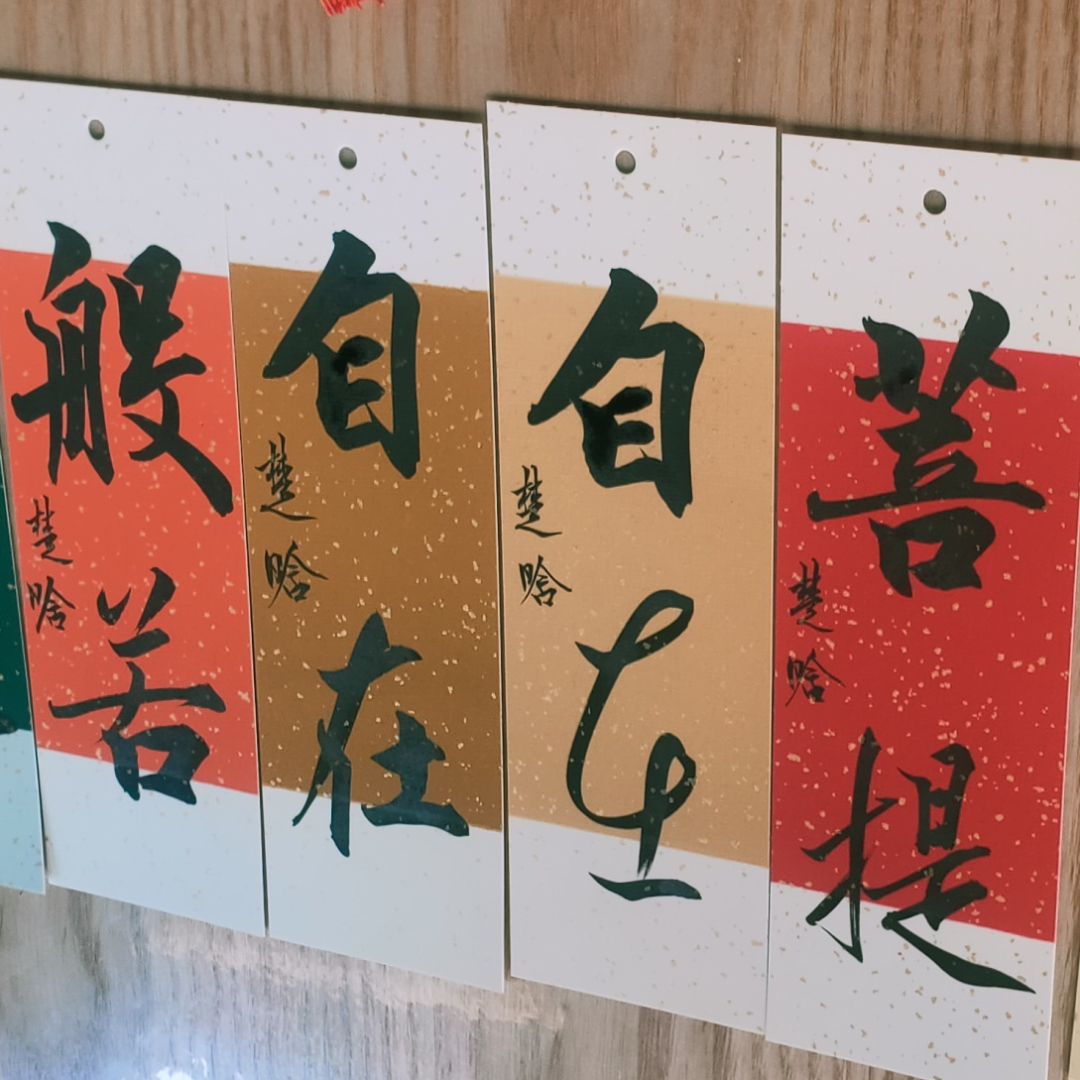 般若
楚晗
自在
楚晗
自在
楚晗
菩提
楚晗